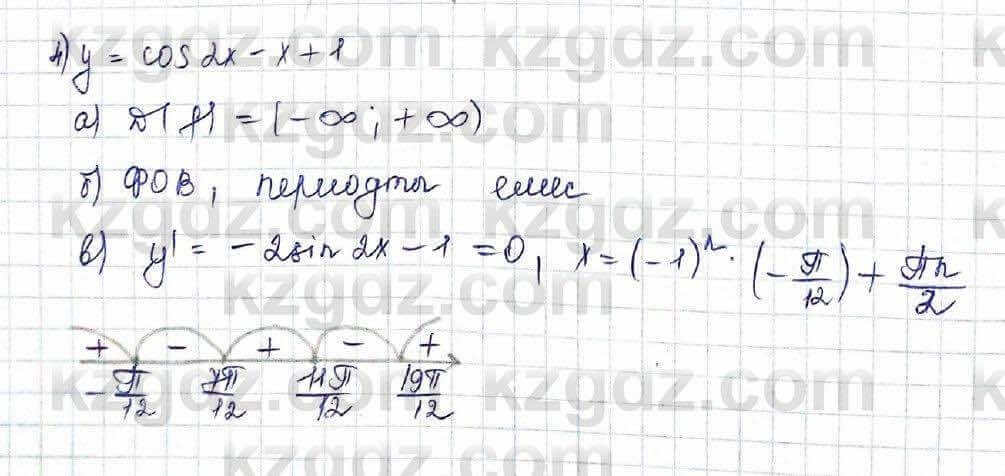 4) y = cos 2x - x + 1
а) D(y) = (-∞; +∞)
б) ФОВ, периодты емес
в) y' = -2sin 2x - 1 = 0, x = (-1)ⁿ · (-π/12) + πn/2
+ - + - +
-π/12 7π/12 11π/12 19π/12
kzgdz.com kzgdz.com
kzgdz.com
kzgdz.com kzgdz.com
kzgdz.com
kzgdz.com kzgdz.com
kzgdz.com